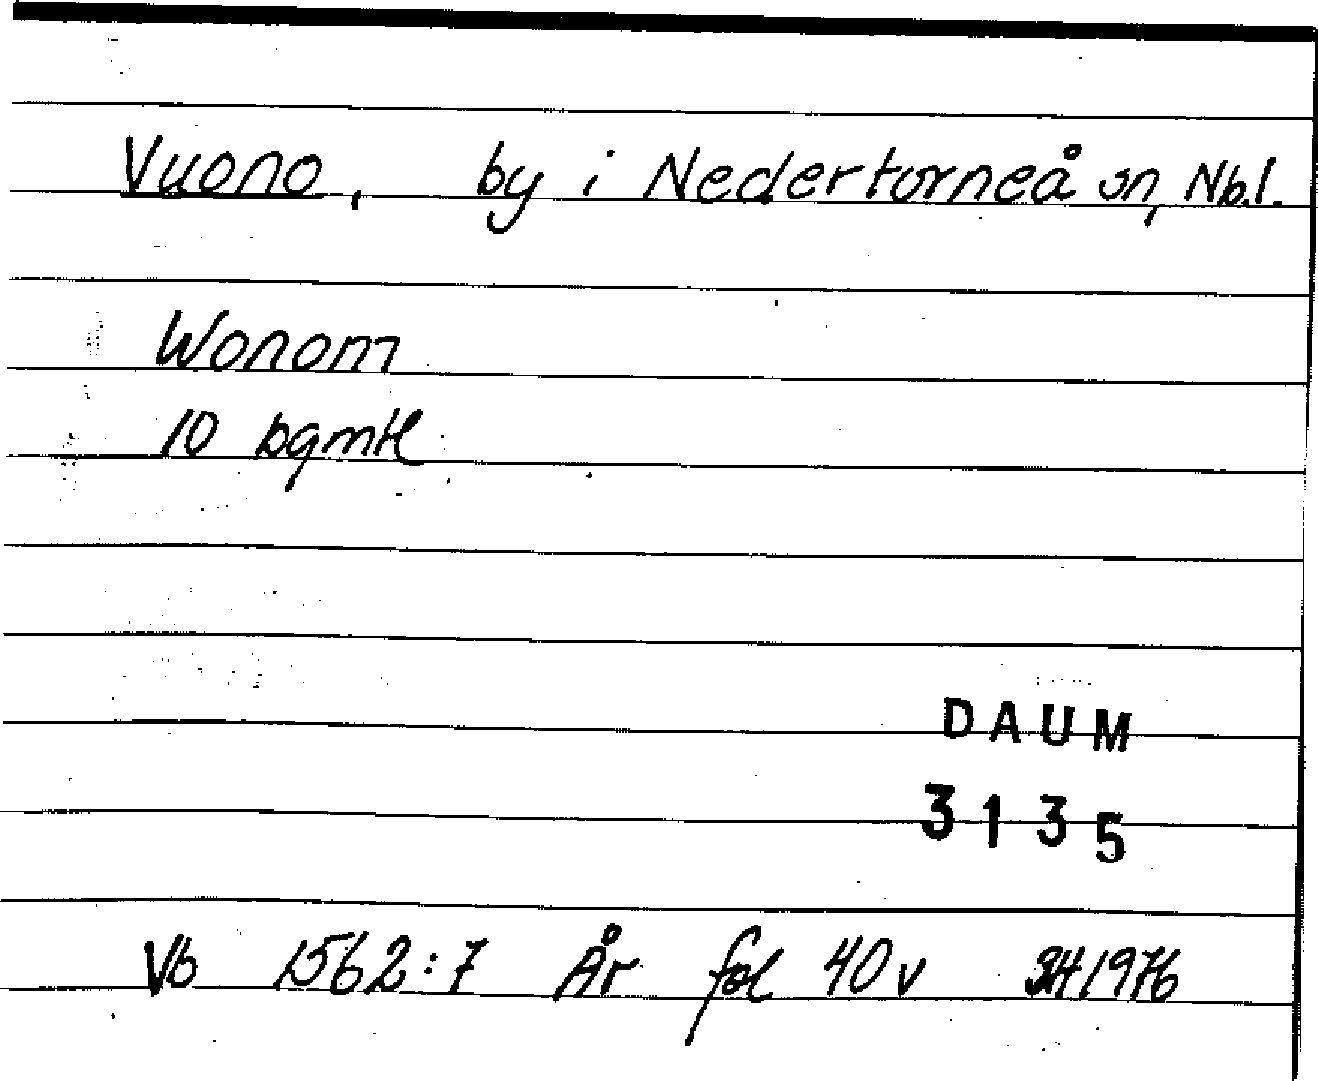 Vuono, by i Nedertorneå sn, Nb.l.
Wonom
10 bqmtl
DAUM
3135
Vb 1562:7 År fol 40v 1976